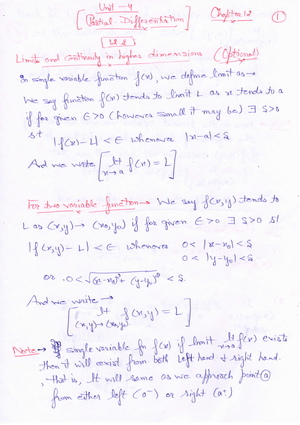 Unit - 4
[Partial Differentiation]
Chapter 12
①
14.2
Limits and Continuity in higher dimensions (Optional)
In single variable function f(x), we define limit as →
We say function f(x) tends to limit L as x tends to a
if for given ∈>0 (however small it may be) ∃ δ>0
st |f(x)-L| < ∈ whenever |x-a|<δ
And we write [lt x→a f(x) = L]
For two variable function → We say f(x,y) tends to
L as (x,y) → (x₀,y₀) if for given ∈>0 ∃ δ>0 st
|f(x,y) - L| < ∈ whenever 0< |x-x₀| <δ
0 < |y-y₀| <δ
or 0< √(x-x₀)²+ (y-y₀)² < δ.
And we write →
[lt (x,y)→(x₀,y₀) f(x,y) = L]
Note → single variable fn f(x) if limit lt x→a f(x) exists
then it will exist from both left hand & right hand.
, that is, lt will same as we approach point ⓐ
from either left (a⁻) or right (a⁺)